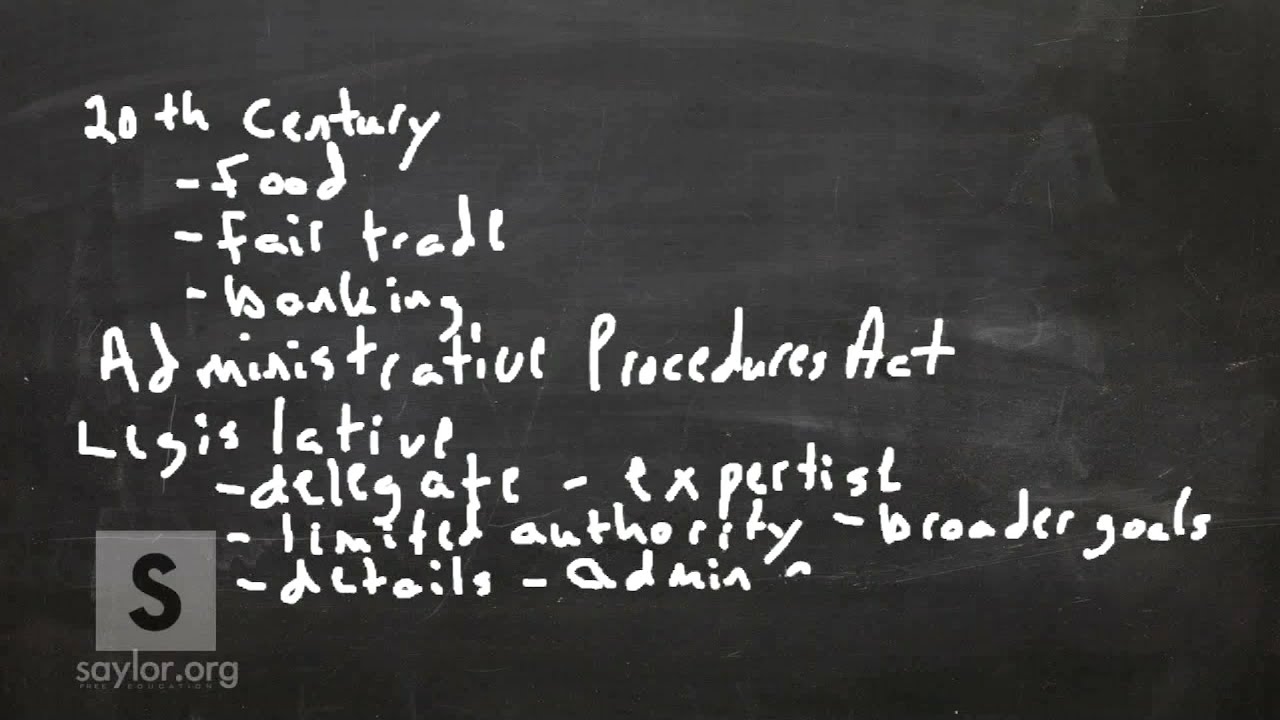 20th Century
- food
- fair trade
- banking
Administrative Procedures Act
Legislative
- delegate - expertise
- limited authority - broader goals
- details - admin
S
saylor.org
FREE EDUCATION